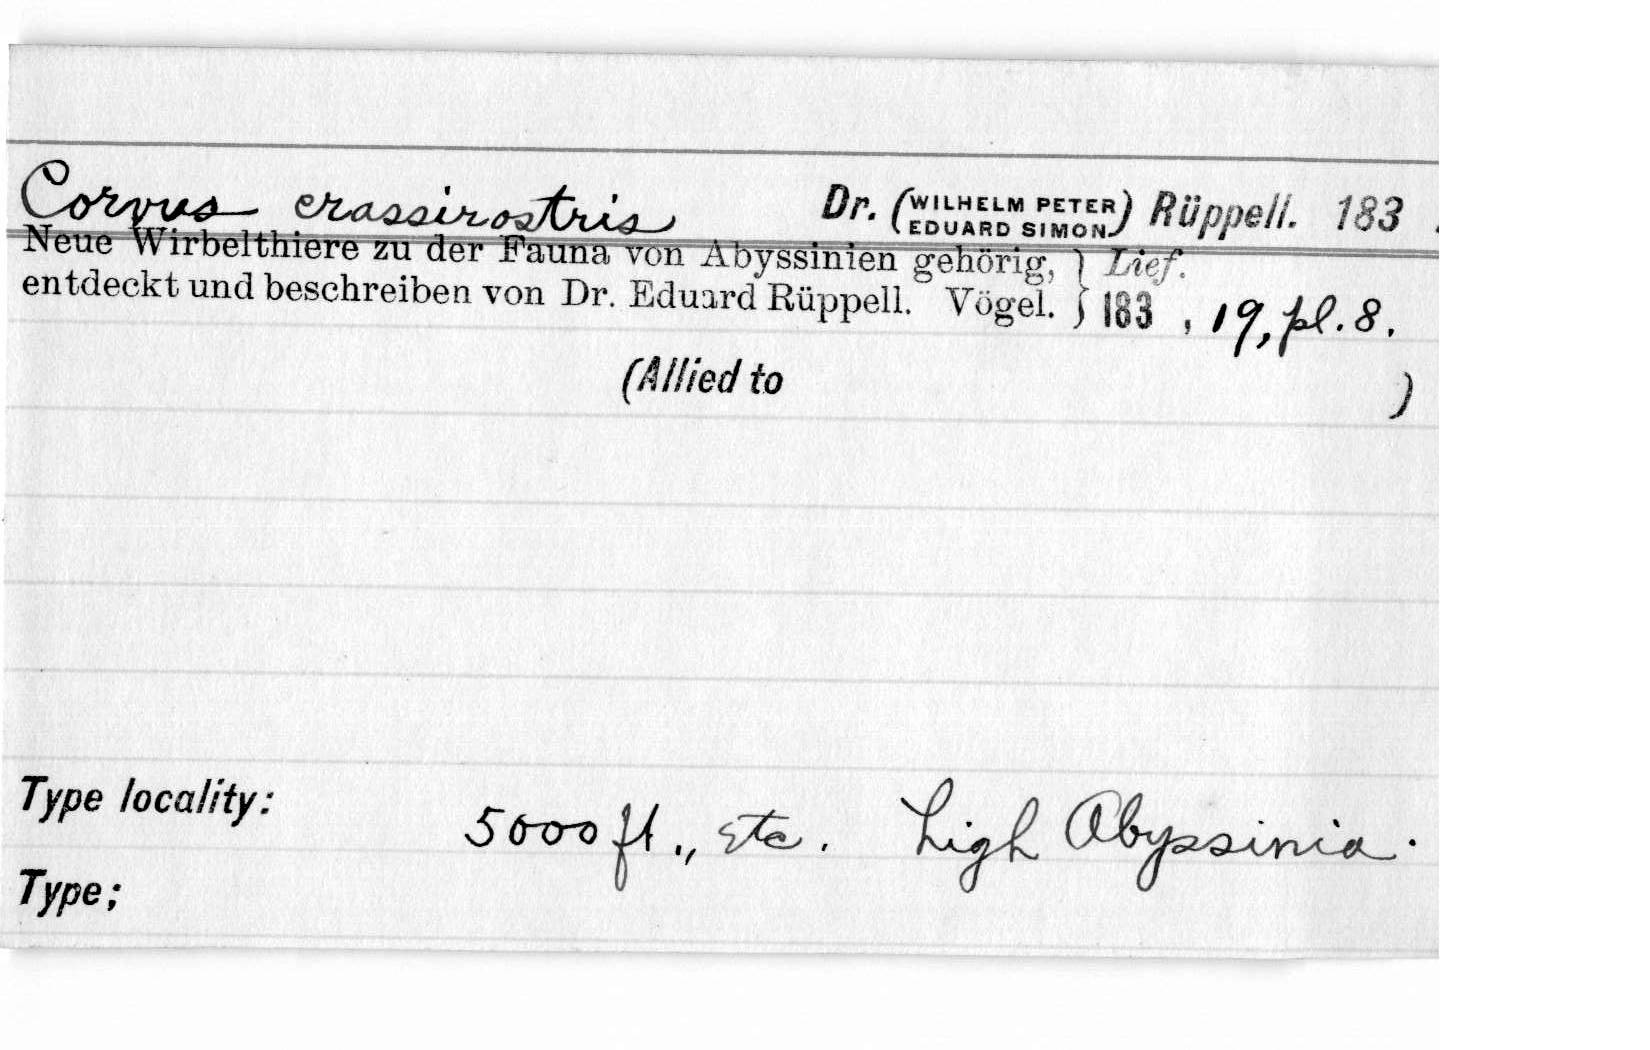 Corvus crassirostris Dr. (WILHELM PETER EDUARD SIMON) Rüppell. 183 .
Neue Wirbelthiere zu der Fauna von Abyssinien gehörig, } Lief.
entdeckt und beschreiben von Dr. Eduard Rüppell. Vögel. } 183 , 19, pl. 8.
(Allied to )
Type locality: 5000 ft., etc. high Abyssinia.
Type;